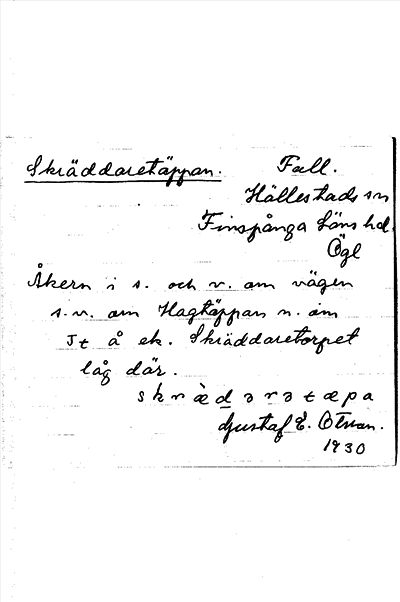 Skräddaretäppan. Fall.
Hällestads sn
Finspånga läns hd.
Ögl
Åkern i s. och v. om vägen
s.v. om Hagtäppan n. om
Jt å ek. Skräddaretorpet
låg där.
skræ̀dərətæpa
Gustaf E.
1930